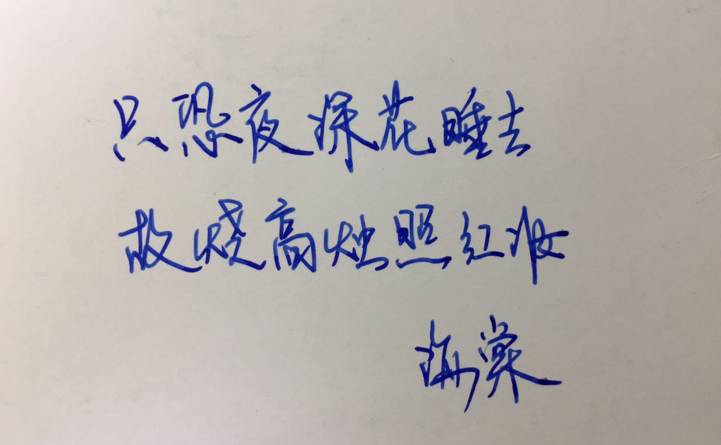 只恐夜深花睡去
故烧高烛照红妆
海棠